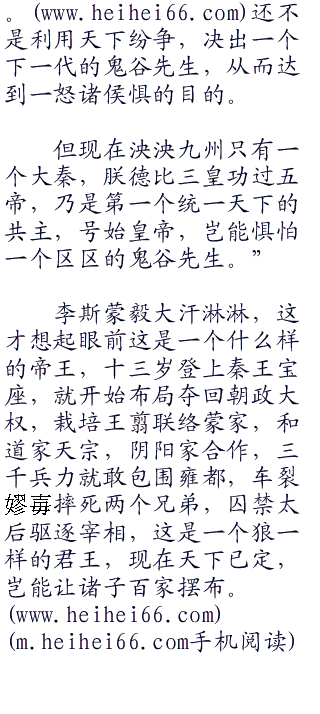 。(www.heihei66.com)还不
是利用天下纷争，决出一个
下一代的鬼谷先生，从而达
到一怒诸侯惧的目的。
但现在泱泱九州只有一
个大秦，朕德比三皇功过五
帝，乃是第一个统一天下的
共主，号始皇帝，岂能惧怕
一个区区的鬼谷先生。”
李斯蒙毅大汗淋淋，这
才想起眼前这是一个什么样
的帝王，十三岁登上秦王宝
座，就开始布局夺回朝政大
权，栽培王翦联络蒙家，和
道家天宗，阴阳家合作，三
千兵力就敢包围雍都，车裂
嫪毐摔死两个兄弟，囚禁太
后驱逐宰相，这是一个狼一
样的君王，现在天下已定，
岂能让诸子百家摆布。
(www.heihei66.com)
(m.heihei66.com手机阅读)